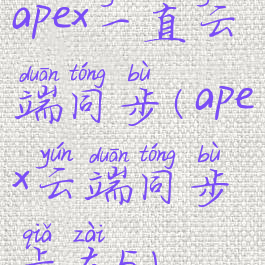 apex一直云
duān tóng bù
端同步(ape
yún duān tóng bù
x云端同步
qiǎ zài
卡在5)